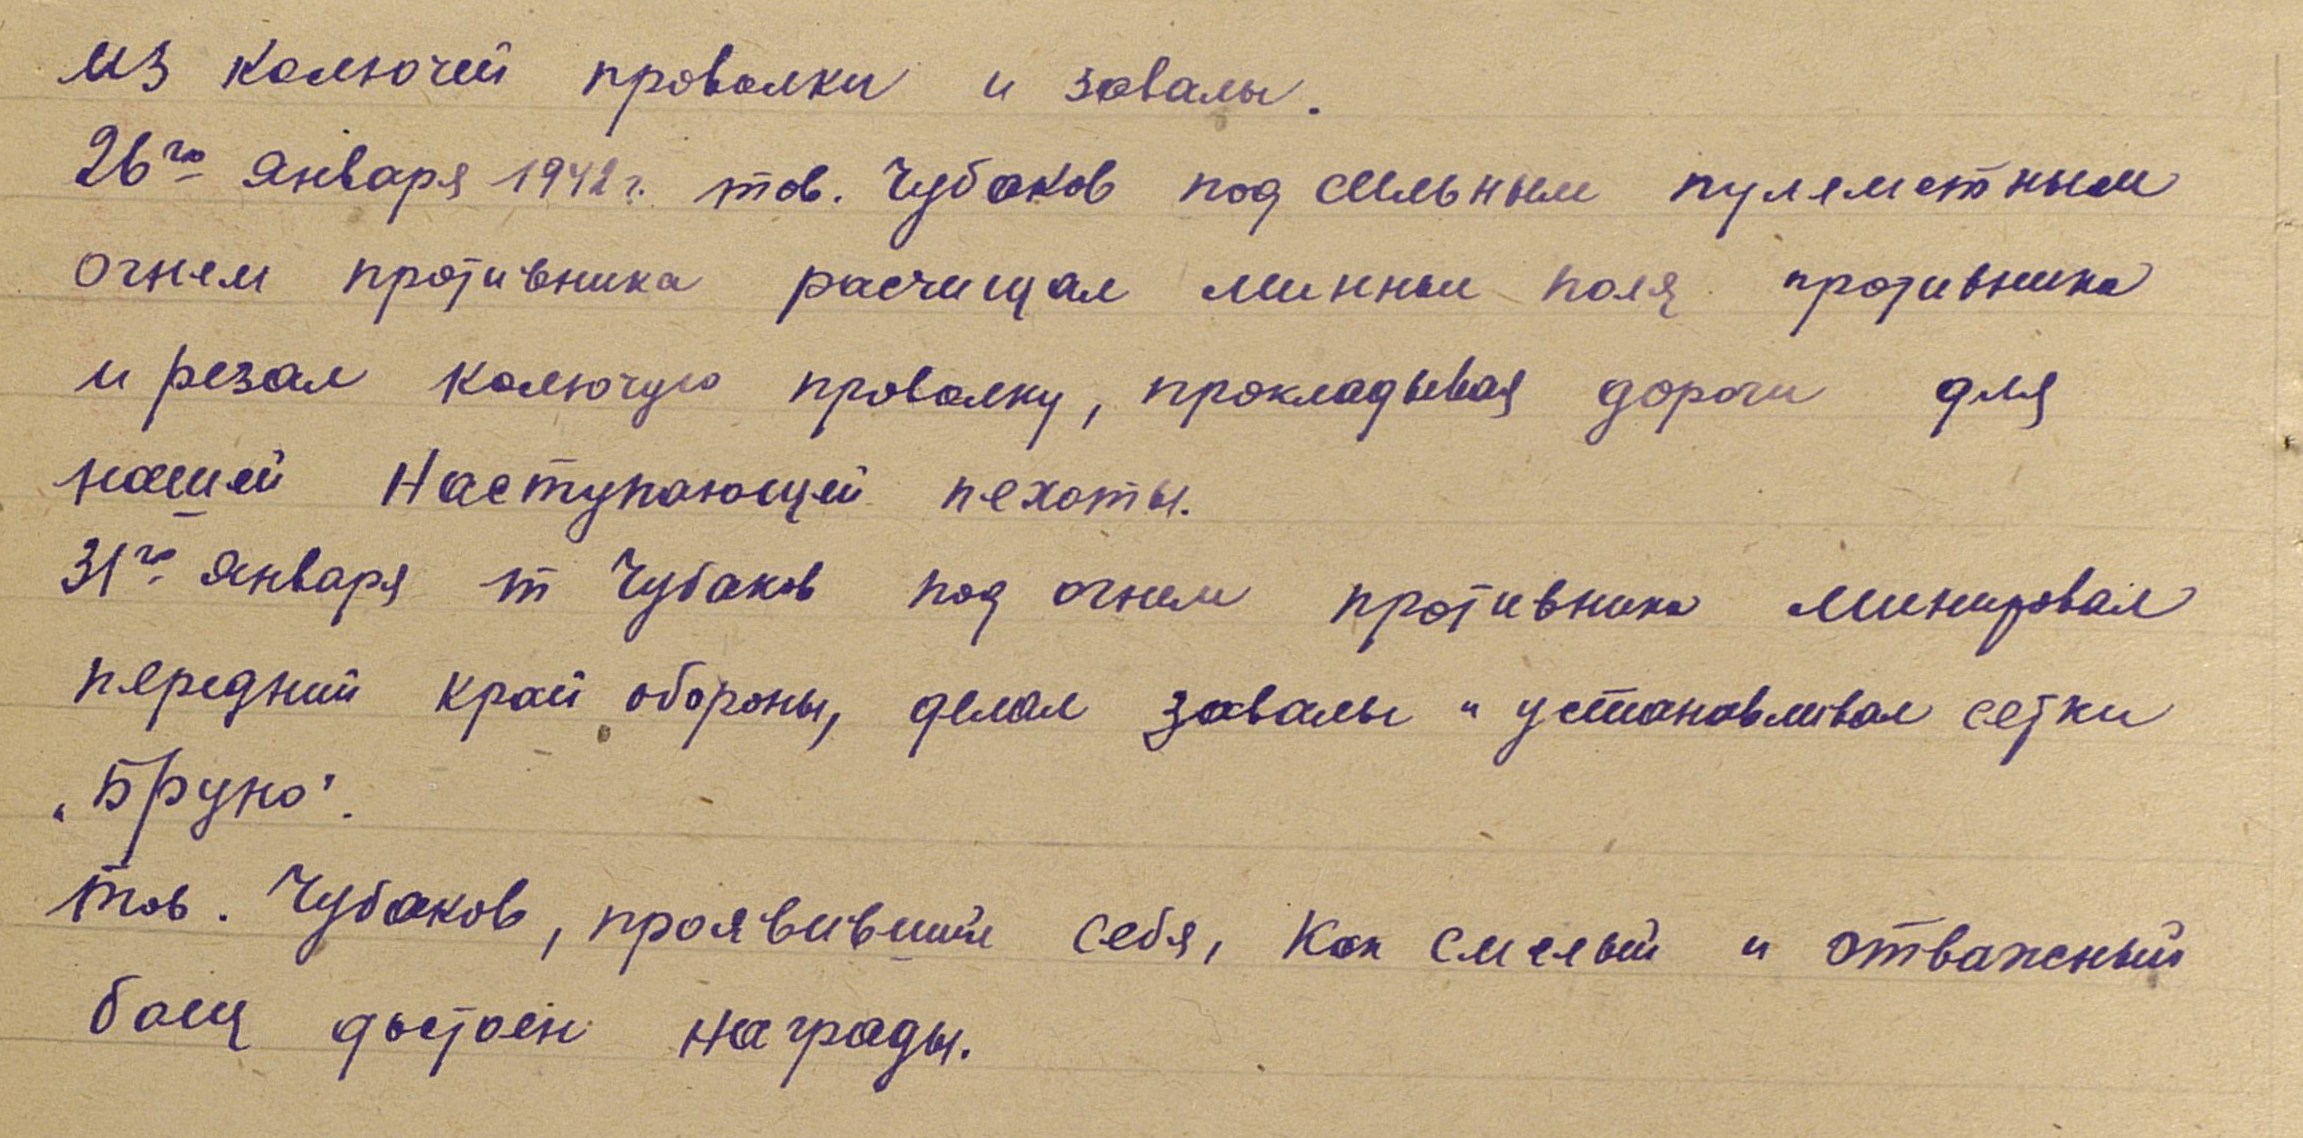 из колючей проволки и завалы.
26го января 1942г. тов. Чубаков под сильным пулеметным
огнем противника расчищал минные поля противника
и резал колючую проволку, прокладывая дороги для
нашей наступающей пехоты.
31го января т Чубаков под огнем противника минировал
передний край обороны, делал завалы и устанавливал сетки
„Бруно".
Тов. Чубаков, проявивший себя, как смелый и отважный
боец достоен награды.